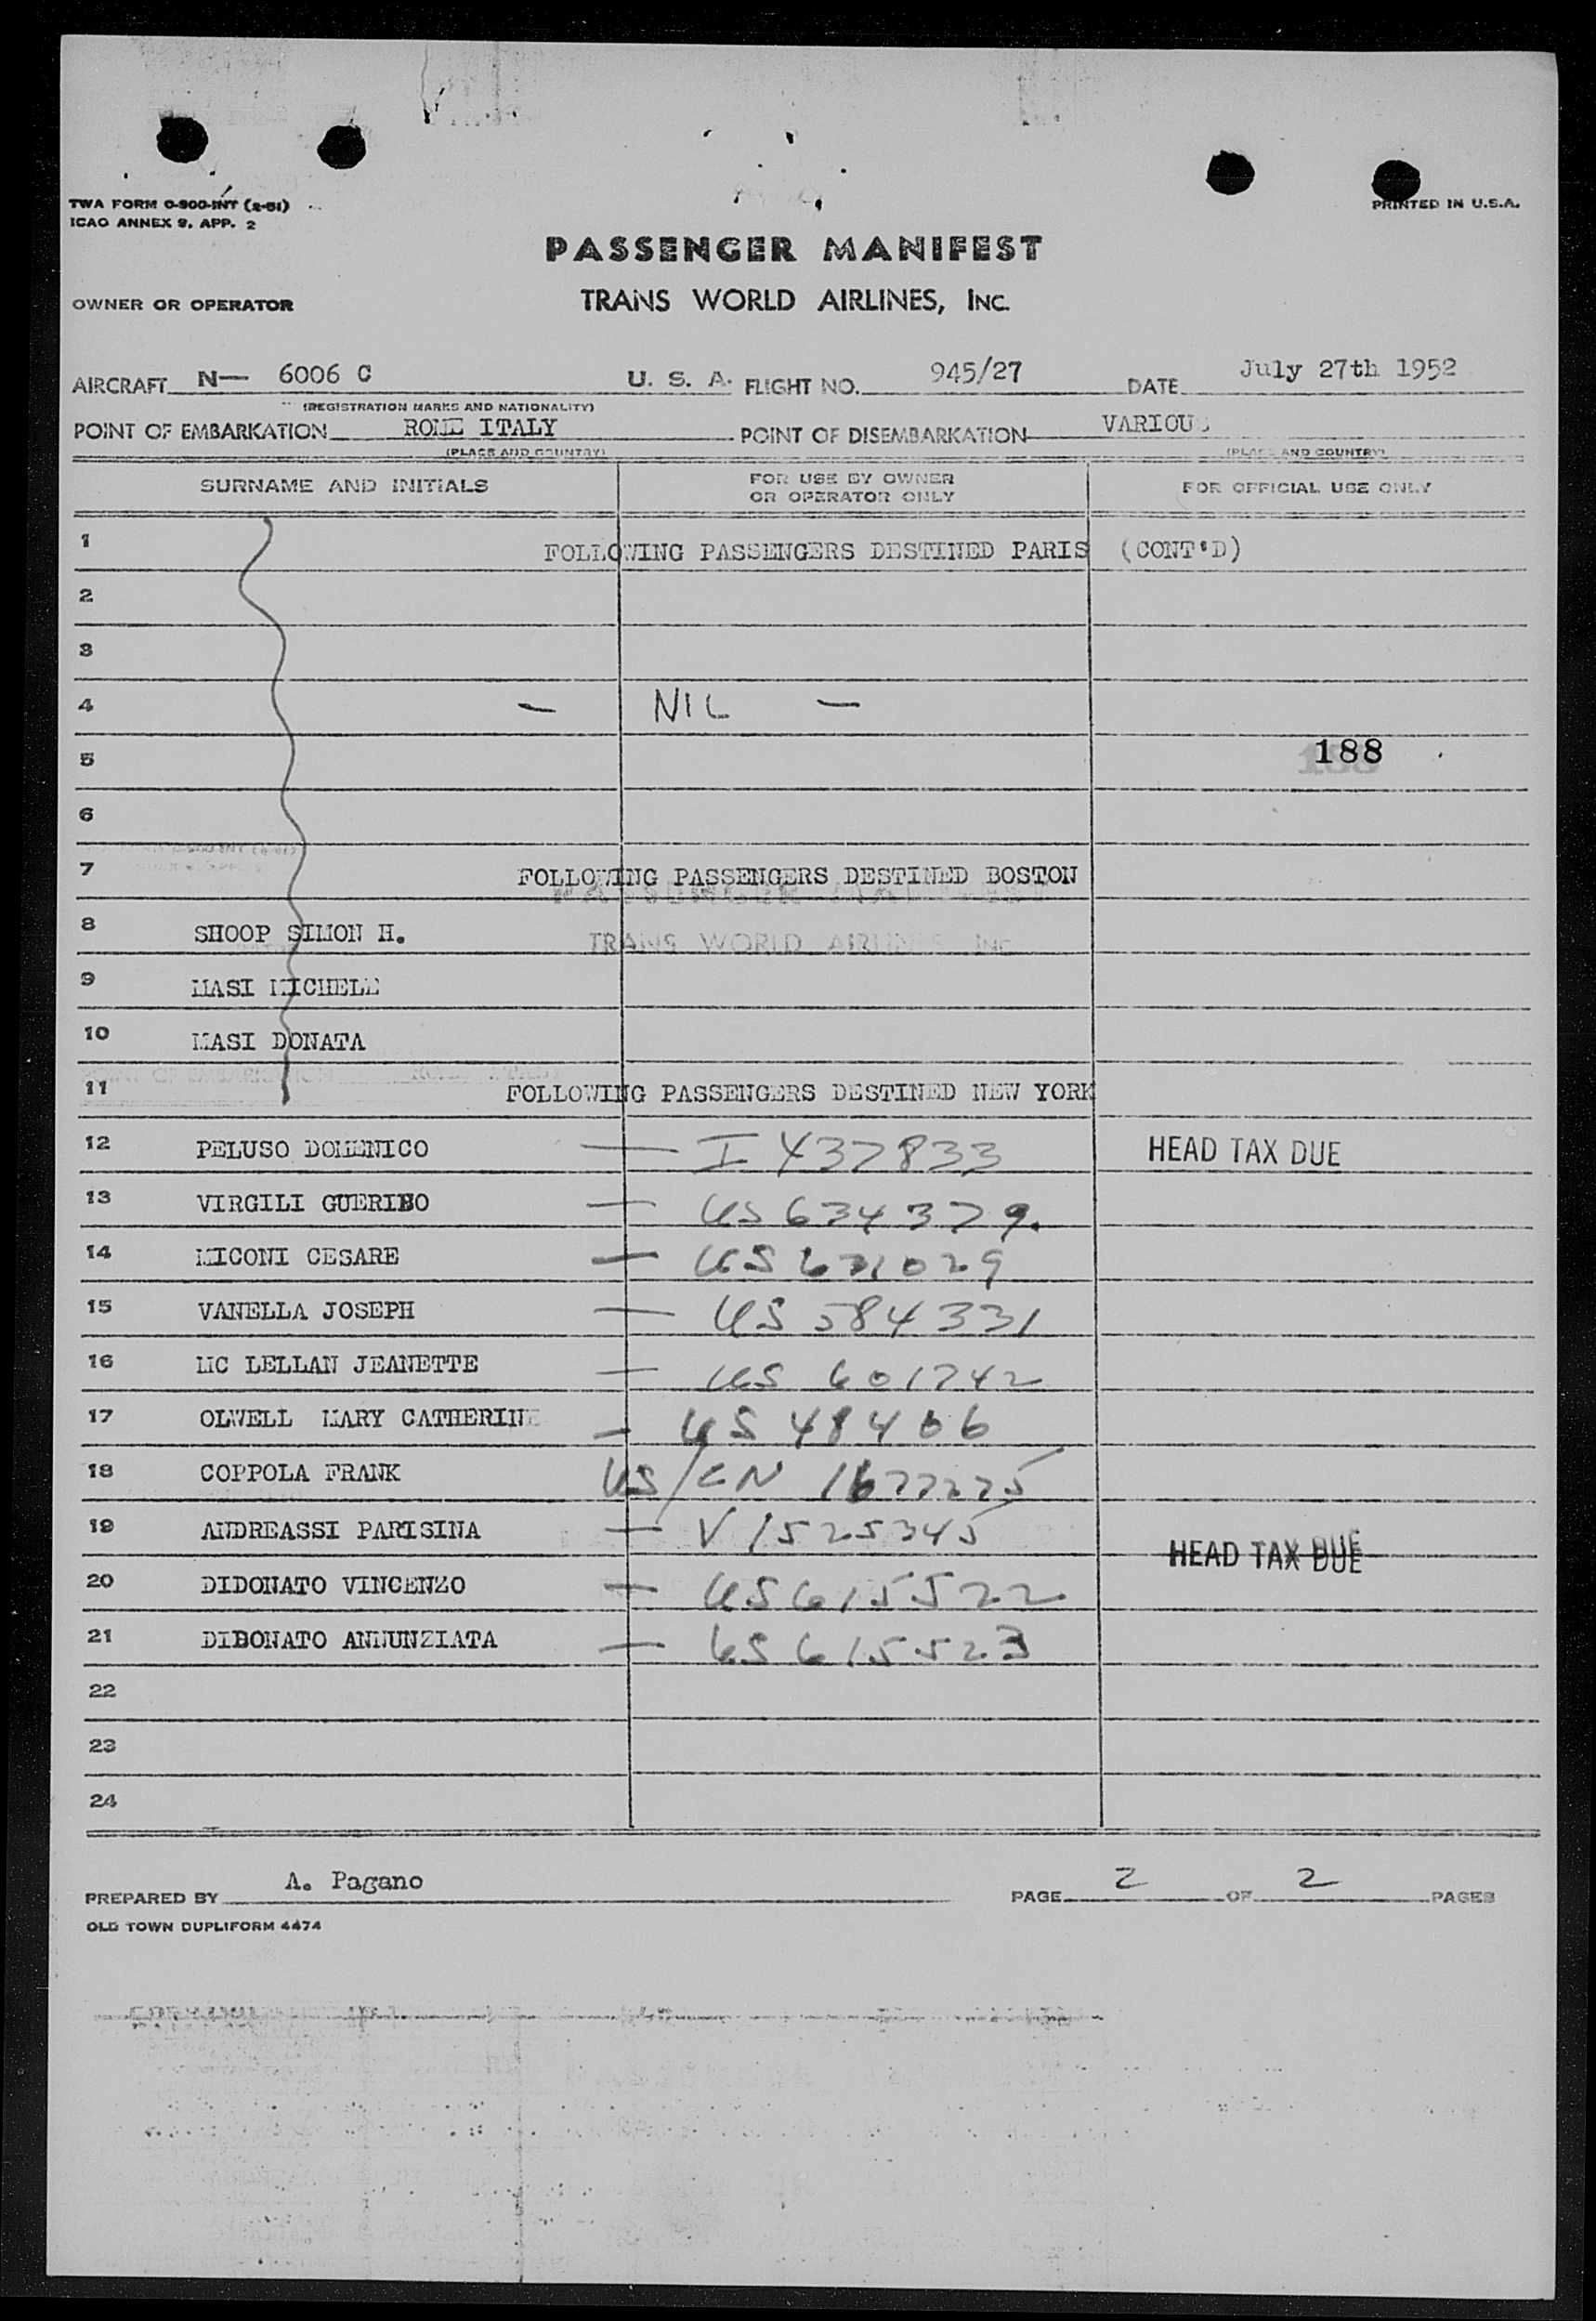 TWA FORM O-900-INT (2-51)
ICAO ANNEX 9, APP. 2
PRINTED IN U.S.A.
PASSENGER MANIFEST
OWNER OR OPERATOR TRANS WORLD AIRLINES, INC.
AIRCRAFT N— 6006 C U. S. A. FLIGHT NO. 945/27 DATE July 27th 1952
(REGISTRATION MARKS AND NATIONALITY)
POINT OF EMBARKATION ROME ITALY POINT OF DISEMBARKATION VARIOUS
(PLACE AND COUNTRY) (PLACE AND COUNTRY)
SURNAME AND INITIALS FOR USE BY OWNER OR OPERATOR ONLY FOR OFFICIAL USE ONLY
1 FOLLOWING PASSENGERS DESTINED PARIS (CONT'D)
2
3
4 — NIL —
5 188
6
7 FOLLOWING PASSENGERS DESTINED BOSTON
8 SHOOP SIMON H.
9 MASI MICHELE
10 MASI DONATA
11 FOLLOWING PASSENGERS DESTINED NEW YORK
12 PELUSO DOMENICO — I 437833 HEAD TAX DUE
13 VIRGILI GUERINO — US 634379.
14 MICONI CESARE — US 631029
15 VANELLA JOSEPH — US 584331
16 MC LELLAN JEANETTE — US 601742
17 OLWELL MARY CATHERINE — US 48406
18 COPPOLA FRANK US/CN 1677275
19 ANDREASSI PARISINA — V 1525345 HEAD TAX DUE
20 DIDONATO VINCENZO — US 615522
21 DIDONATO ANNUNZIATA — US 615523
22
23
24
PREPARED BY A. Pagano PAGE 2 OF 2 PAGES
OLD TOWN DUPLIFORM 4474